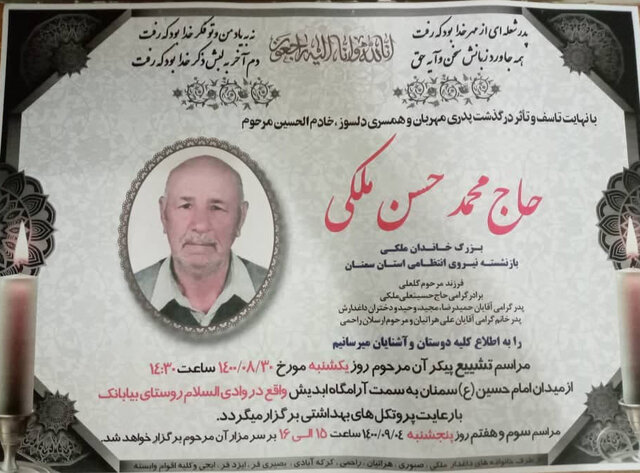 پدر شعله ای از مهر خدا بود که رفت
نه به یاد من و تو فکر خدا بود که رفت
همه جا ورد زبانش سخن و آیه حق
دم آخر به لبش ذکر خدا بود که رفت
انا لله و انا الیه راجعون
با نهایت تاسف و تأثر درگذشت پدری مهربان و همسری دلسوز ، خادم الحسین مرحوم
حاج محمد حسن ملکی
بزرگ خاندان ملکی
بازنشسته نیروی انتظامی استان سمنان
فرزند مرحوم گلعلی
برادر گرامی حاج حسینعلی ملکی
پدر گرامی آقایان حمیدرضا، مجید، وحید و دختران داغدارش
پدر خانم گرامی آقایان علی هراتیان و مرحوم ارسلان راحمی
را به اطلاع کلیه دوستان و آشنایان میرسانیم
مراسم تشییع پیکر آن مرحوم روز یکشنبه مورخ ۱۴۰۰/۰۸/۳۰ ساعت ۱۴:۳۰
از میدان امام حسین (ع) سمنان به سمت آرامگاه ابدیش واقع در وادی السلام روستای بیابانک
با رعایت پروتکل های بهداشتی برگزار میگردد.
مراسم سوم و هفتم روز پنجشنبه ۱۴۰۰/۰۹/۰۴ ساعت ۱۵ الی ۱۶ بر سر مزار آن مرحوم برگزار خواهد شد.
طرف خانواده های داغدار ملکی ، صبوری ، هراتیان ، راحمی ، کرکه آبادی ، بصیری فر ، ایزد فر ، ایجی و کلیه اقوام وابسته